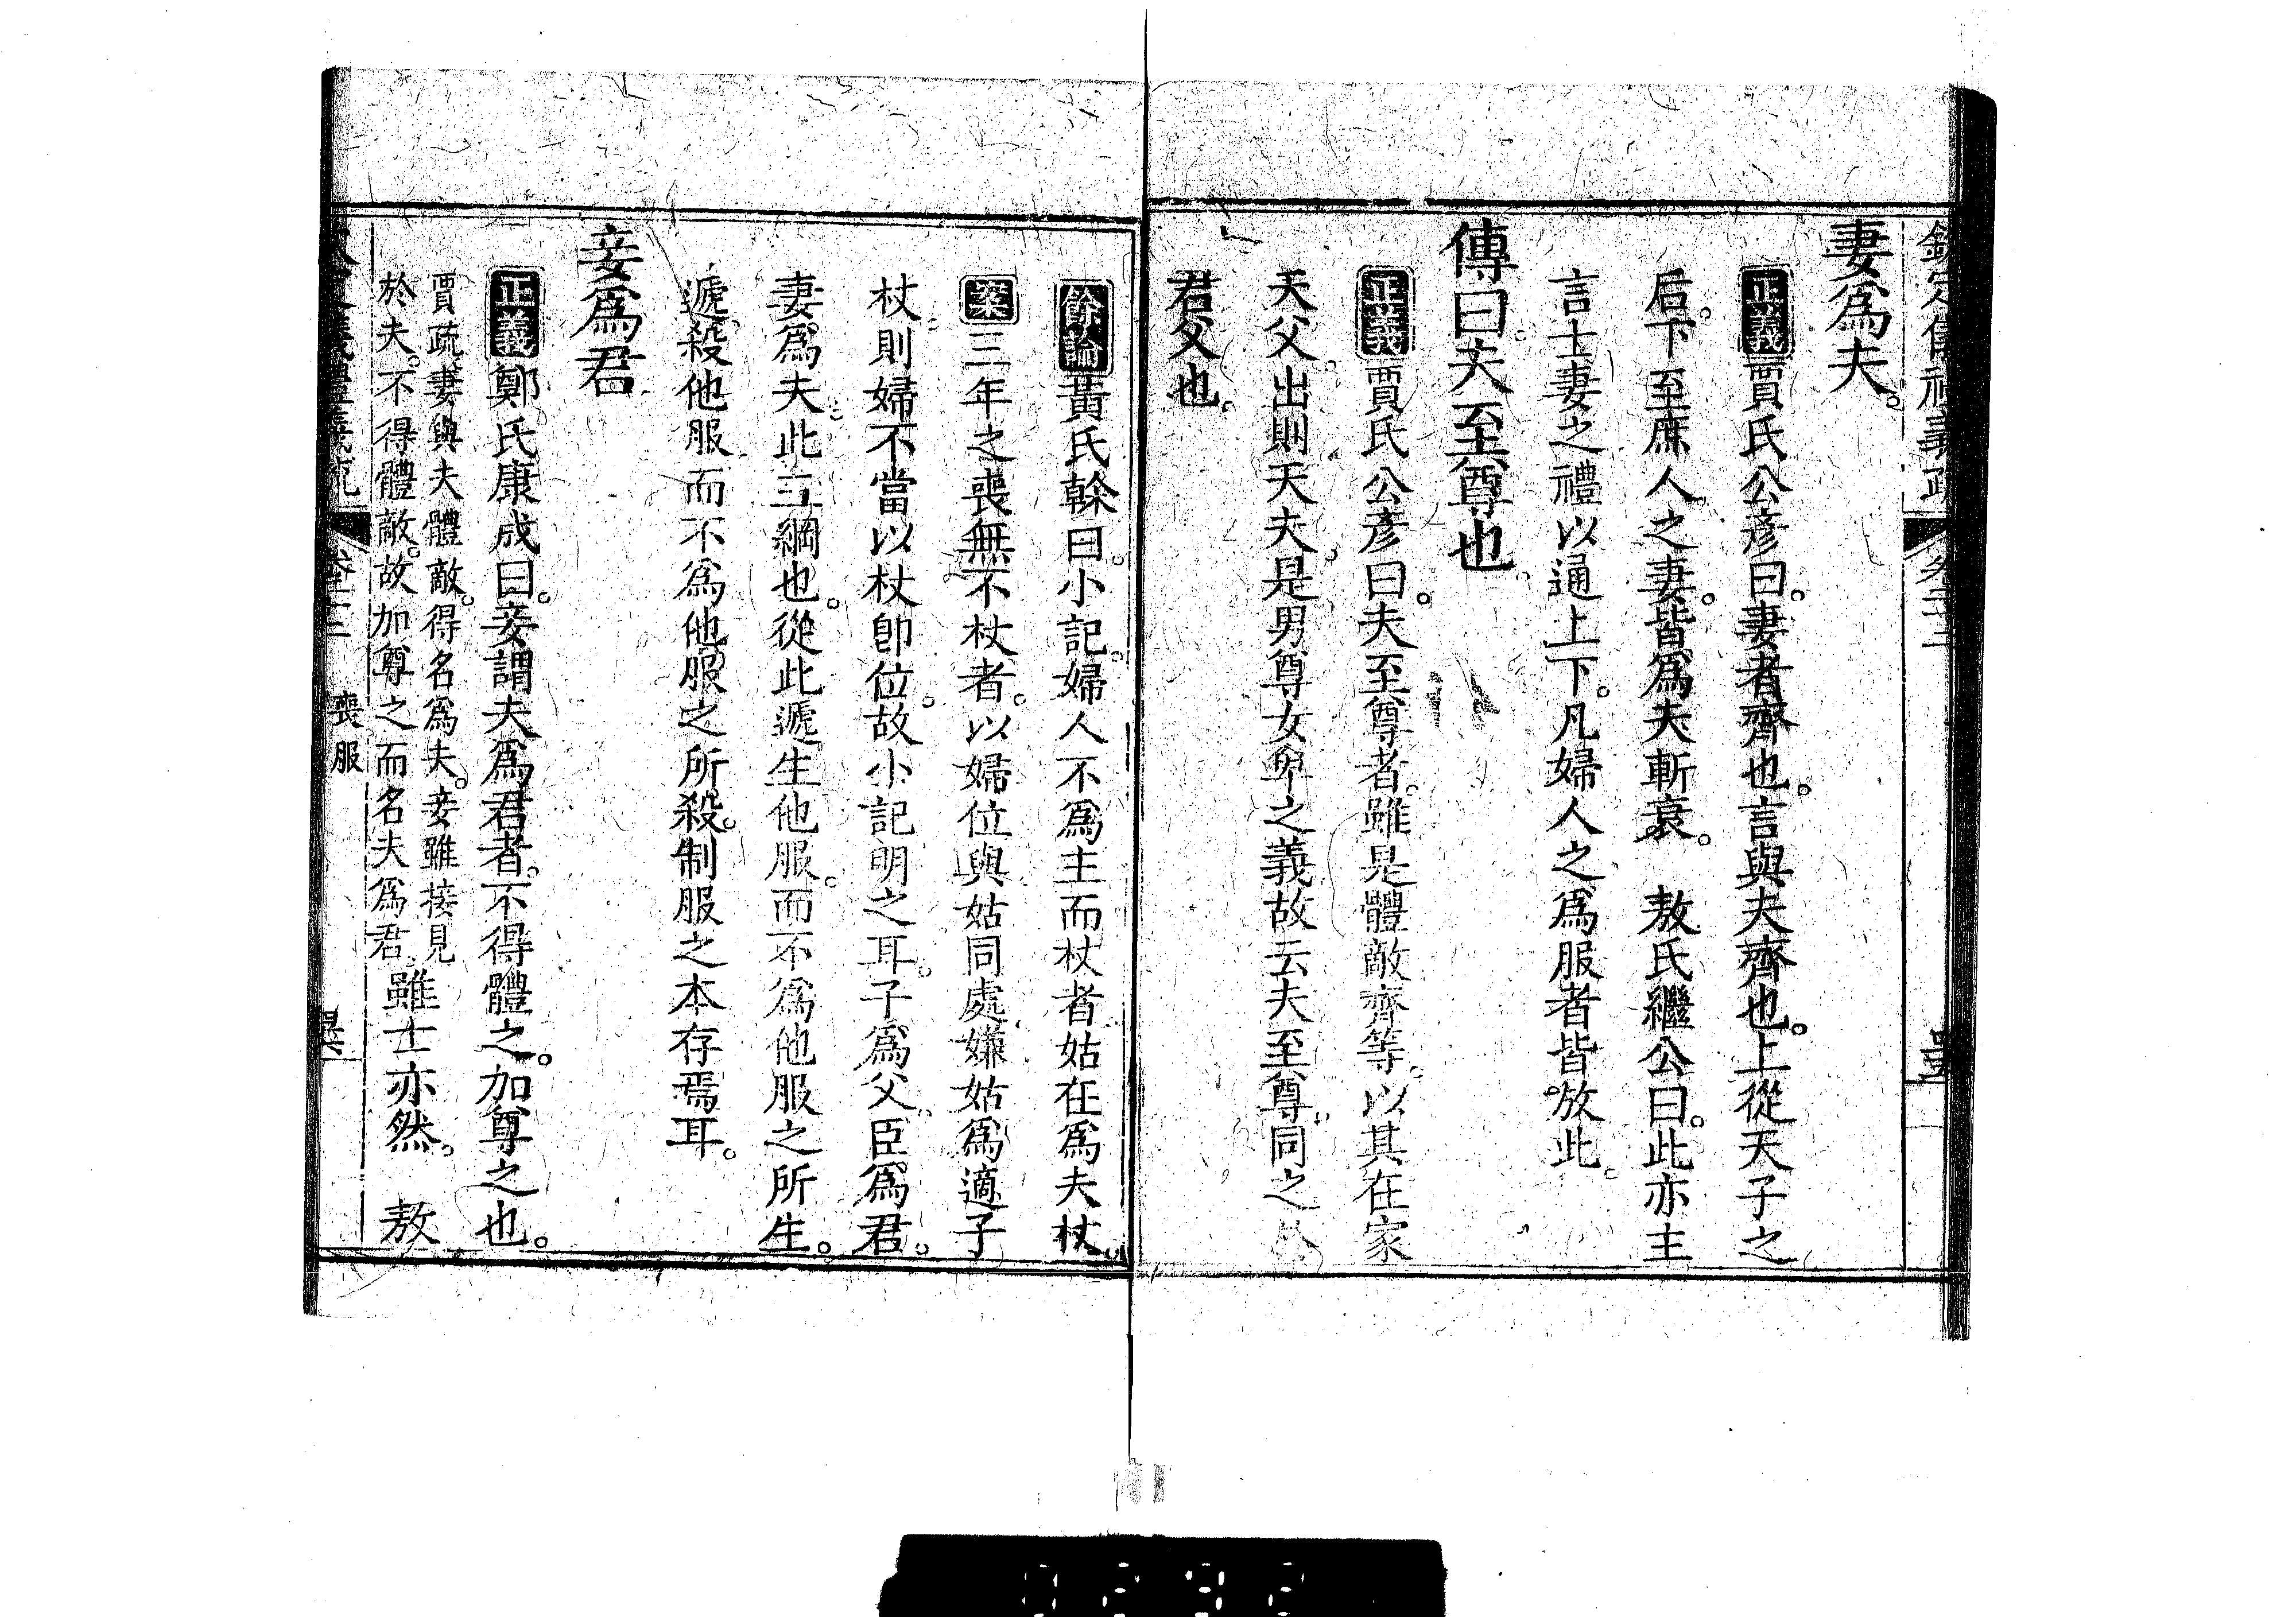 妻爲夫。
正義賈氏公彥曰。妻者齊也。言與夫齊也。上從天子之
后。下至庶人之妻。皆爲夫斬衰。 敖氏繼公曰。此亦主
言士妻之禮以通上下。凡婦人之爲服者皆放此。
傳曰。夫至尊也。
正義賈氏公彥曰。夫至尊者。雖是體敵齊等。以其在家
天父。出則天夫。是男尊女卑之義故云夫至尊。同之
君父也。
餘論黃氏榦曰。小記。婦人不爲主而杖者姑在爲夫杖。
案三年之喪。無不杖者。以婦位與姑同處。嫌姑爲適子
杖。則婦不當以杖卽位。故小記明之耳。子爲父。臣爲君。
妻爲夫。此三綱也。從此遞生他服。而不爲他服之所生。
遞殺他服而不爲他服之所殺。制服之本存焉耳。
妾爲君
正義鄭氏康成曰。妾謂夫爲君者。不得體之。加尊之也。
賈疏。妻與夫體敵。得名爲夫。妾雖接見
於夫。不得體敵。故加尊之而名夫爲君。雖士亦然。 敖
喪服